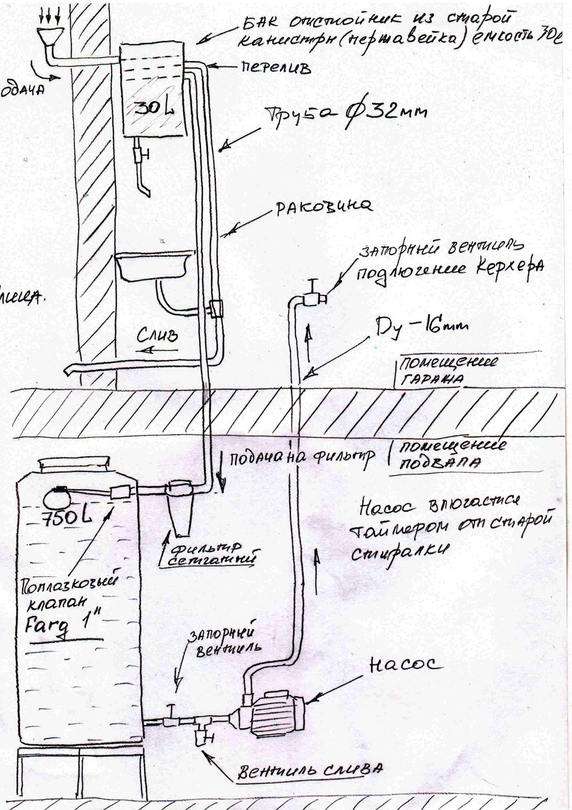 БАК отстойник из старой
канистры (нержавейка) емкость 30л
ОДАЧА
ПЕРЕЛИВ
30L
Труба ϕ32мм
РАКОВИНА
ЛИЦА.
ЗАПОРНЫЙ ВЕНТИЛЬ
ПОДЛЮЧЕНИЕ КЕРХЕРА
СЛИВ
Dy-16mm
ПОМЕЩЕНИЕ
ГАРАЖА
ПОДАЧА НА ФИЛЬТР
ПОМЕЩЕНИЕ
ПОДВАЛА
750L
ФИЛЬТР
СЕТЧАТЫЙ
Насос влючается
таймером от старой
стиралки
Поплавковый
клапан
Farg 1"
ЗАПОРНЫЙ
ВЕНТИЛЬ
НАСОС
ВЕНТИЛЬ СЛИВА